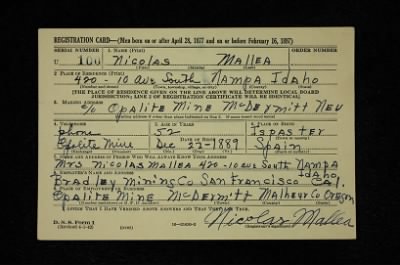 REGISTRATION CARD—(Men born on or after April 28, 1877 and on or before February 16, 1897)
SERIAL NUMBER 1. NAME (Print) ORDER NUMBER
U 100 Nicolas Mallea
2. PLACE OF RESIDENCE (Print)
420 - 10 ave South Nampa Idaho
(Number and street) (Town, township, village, or city) (County) (State)
[THE PLACE OF RESIDENCE GIVEN ON THE LINE ABOVE WILL DETERMINE LOCAL BOARD
JURISDICTION; LINE 2 OF REGISTRATION CERTIFICATE WILL BE IDENTICAL]
3. MAILING ADDRESS
c/o Opalite Mine McDermitt Nev
4. TELEPHONE 5. AGE IN YEARS 6. PLACE OF BIRTH
phone 52 Ispaster
DATE OF BIRTH
Opalite Mine Dec 23-1889 Spain
7. NAME AND ADDRESS OF PERSON WHO WILL ALWAYS KNOW YOUR ADDRESS
Mrs Nicolas Mallea 420-10 ave South Nampa
Idaho
8. EMPLOYER'S NAME AND ADDRESS
Bradley Mining Co San Francisco Cal.
9. PLACE OF EMPLOYMENT OR BUSINESS
Opalite Mine McDermitt Malheur Co Oregon
I AFFIRM THAT I HAVE VERIFIED ABOVE ANSWERS AND THAT THEY ARE TRUE.
D. S. S. Form 1
Nicolas Mallea